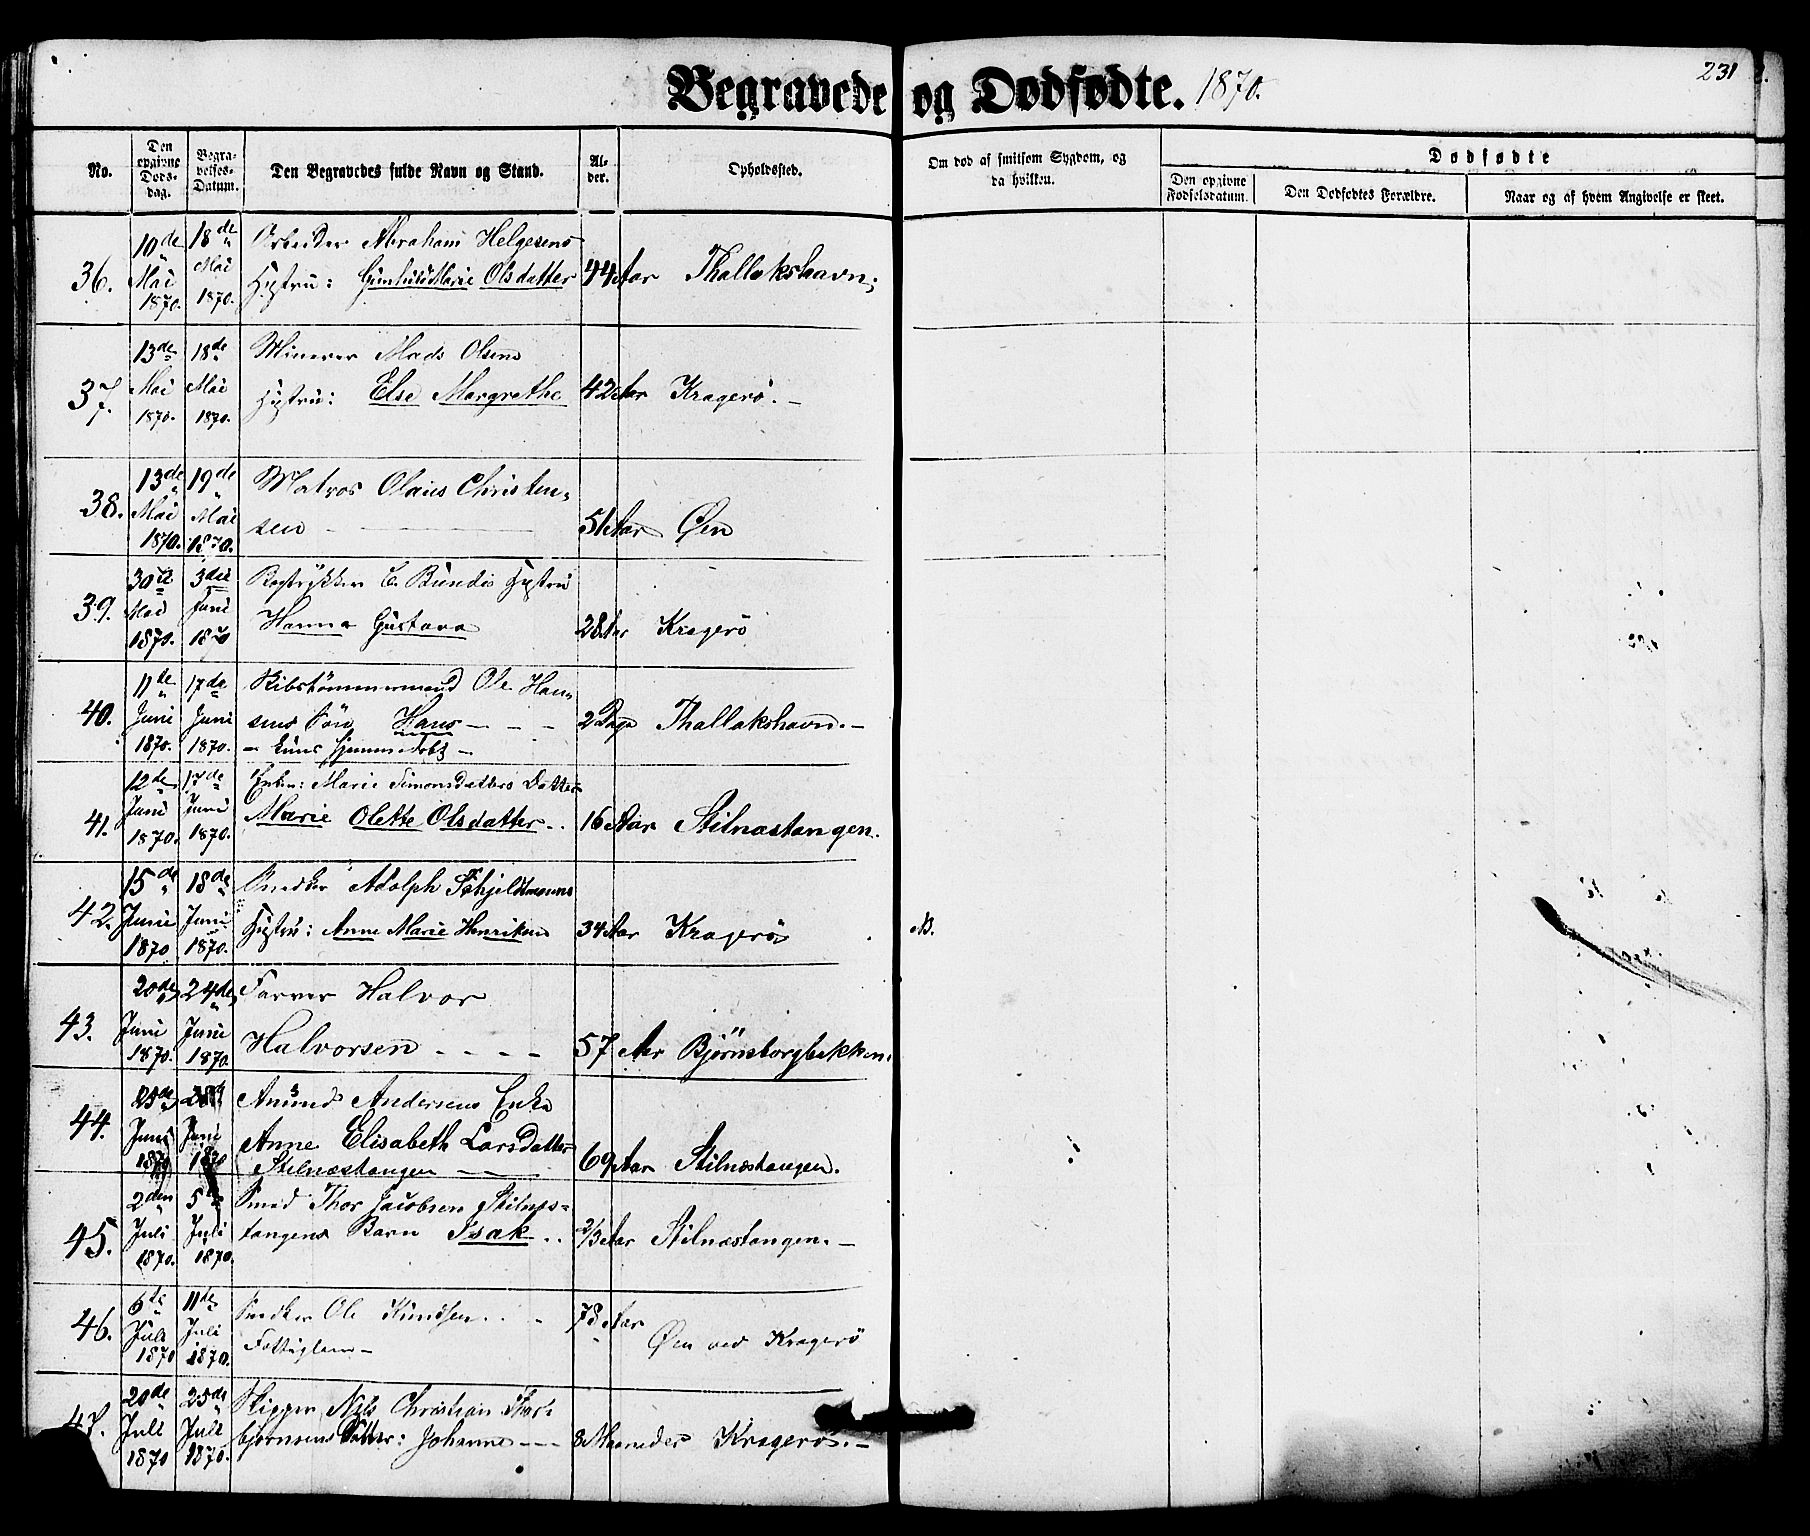 Begravede og Dødfødte. 1870.
231
No.
Den opgivne Døds-dag.
Begra-velses-Datum.
Den Begravedes fulde Navn og Stand.
Al-der.
Opholdssted.
Om død af smitsom Sygdom, og da hvilken.
Dødfødte
Den opgivne Fødselsdatum.
Den Dødfødtes Forældre.
Naar og af hvem Angivelse er skeet.
36. 10de Mai 1870. 18de Mai 1870.
Arbeider Abraham Helgesens
Hustru: Gunhild Marie Olsdatter 44 Aar Thallakshavn.
37. 13de Mai 1870. 18de Mai 1870.
Minerer Mads Olsens
Hustru: Else Margrethe 42 Aar Kragerö. -
38. 13de Mai 1870. 19de Mai 1870.
Matros Olaus Christen-
sen - 51 Aar Øen
39. 30te Mai 1870. 3die Juni 1870
C. Bundes Hustru
Hanna Gustava 28 Aar Kragerö
40. 11te Juni 1870. 17de Juni 1870.
Skibstömmermand Ole Han-
sens Sön Hans - - - 2 Dage Thallakshavn. -
- kuns hjemmedöbt -
41. 12te Juni 1870. 17de Juni 1870.
Enke: Marie Simonsdatters Datter
Marie Olette Olsdatter. . 16 Aar Stilnæstangen.
42. 15de Juni 1870 18de Juni 1870.
Snedker Adolph Schjeldtmanns
Hustru: Anne Marie Henriksen 34 Aar Kragerö
N.
43. 20de Juni 1870. 24de Juni 1870.
Farver Halvor
Halvorsen - - - - 57 Aar Björnsborgbakken.
44. 25de Juni 1870 Juni 1870
Amund Andersens Enke
Anne Elisabeth Larsdatter
Stilnæstangen - 69 Aar Stilnæstangen.
45. 2den Juli 1870. 5te Juli 1870.
Smed Thor Jacobsen Stilnæs-
tangens Barn Isak . . 2/3 Aar Stilnæstangen. -
46. 6te Juli 1870 11te Juli 1870.
Snedker Ole Knudsen . . 78 Aar
Fattiglem - Øen ved Kragerö
47. 20de Juli 1870 25de Juli 1870.
Skipper Nils Christian Thor-
bjørnsens Datter: Johanne - - - 8 Maaneder Kragerö. -